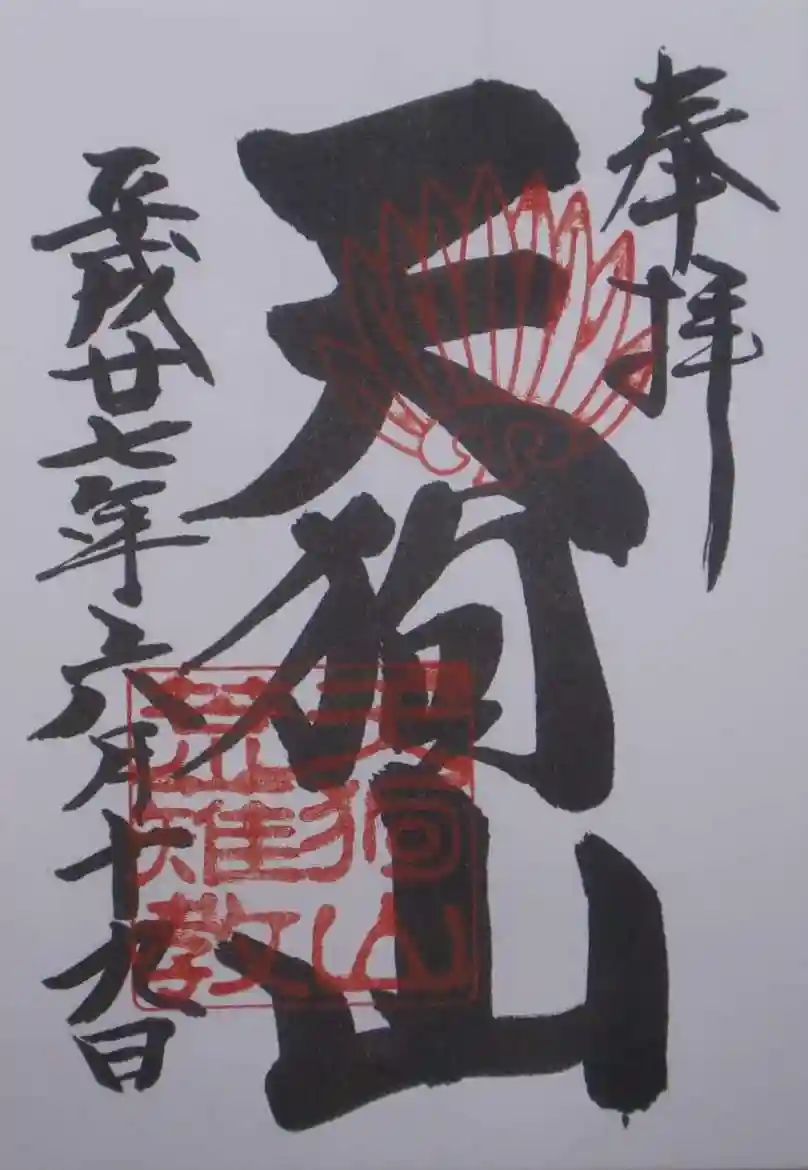 奉拝
天狗山
平成廿七年六月十九日
天狗山
荒薙教